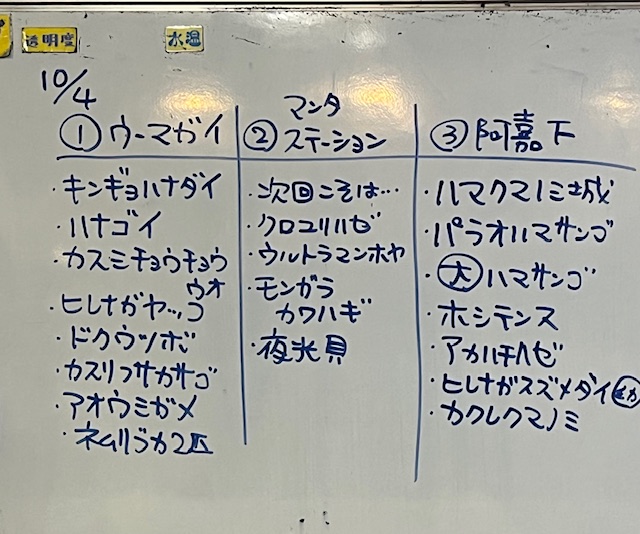 透明度
水温
10/4
① ウーマガイ
・キンギョハナダイ
・ハナゴイ
・カスミチョウチョウ
ウオ
・ヒレナガヤッコ
・ドクウツボ
・カスリフサカサゴ
・アオウミガメ
・ネムリブカ2匹
② マンタ
ステーション
・次回こそは…
・クロユリハゼ
・ウルトラマンホヤ
・モンガラ
カワハギ
・夜光貝
③ 阿嘉下
・ハマクマノミ城
・パラオハマサンゴ
・大ハマサンゴ
・ホシテンス
・アカハチハゼ
・ヒレナガスズメダイ幼
・カクレクマノミ